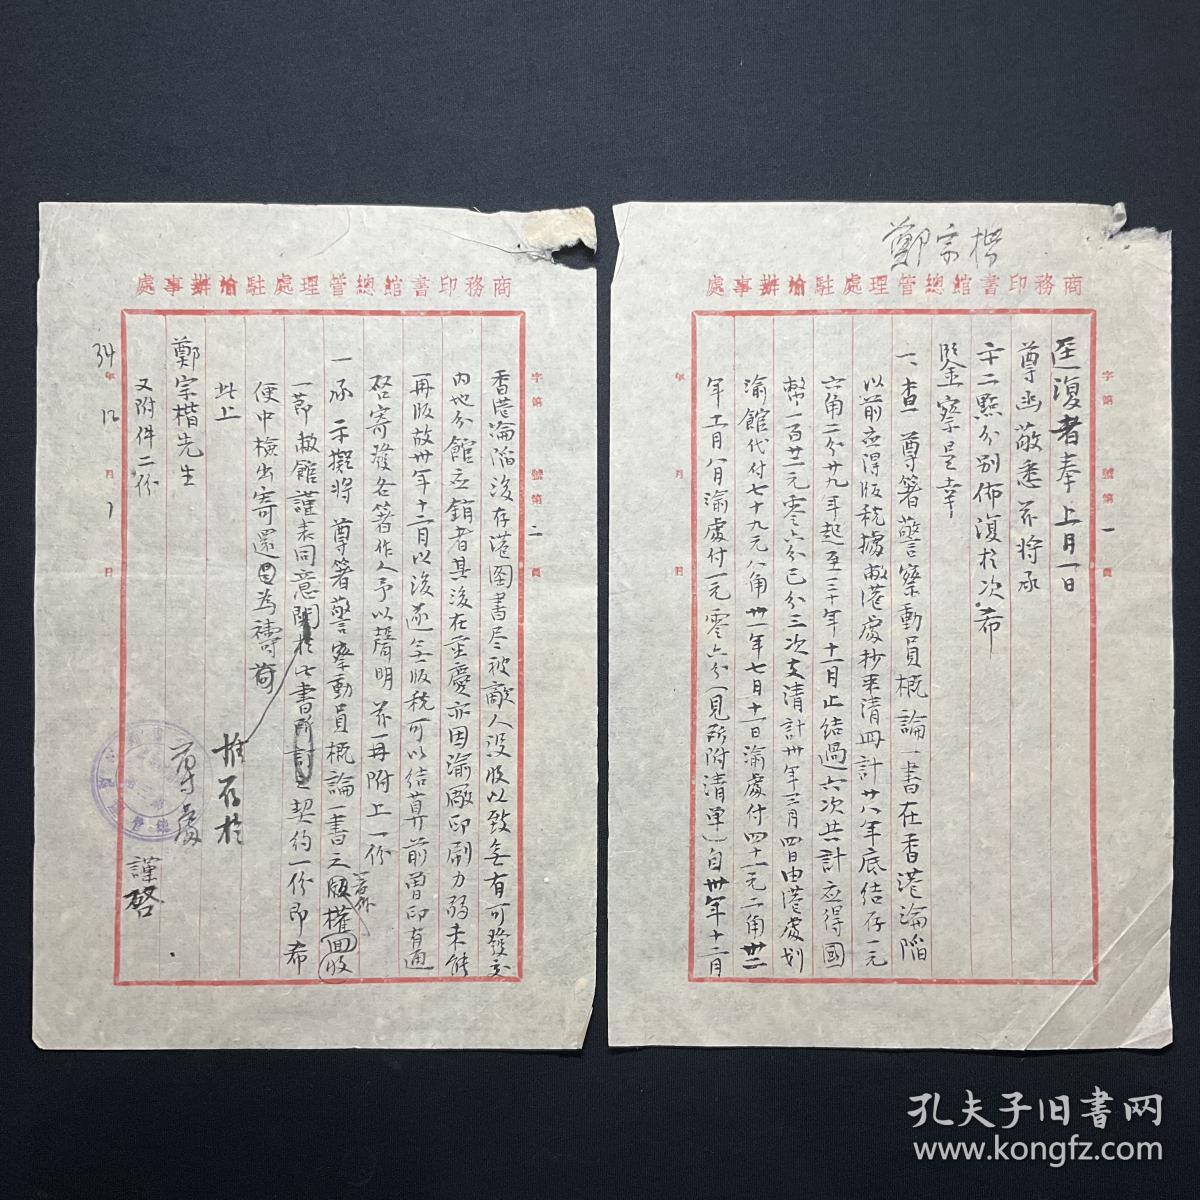 鄭宗楷
商務印書館總管理處駐渝辦事處
字第 號第一頁
逕復者奉上月一日
尊函敬悉茲將承
示二點分別佈復於次希
鑒察是幸
一、查 尊著警察動員概論一書在香港淪陷
以前應得版稅據敝港處抄來清冊計廿八年底結存一元
六角二分廿九年起至三十年十一月止結過六次共計應得國
幣一百廿一元零六分已分三次支清計卅年三月四日由港處划
渝館代付七十九元八角卅一年七月十一日渝處付四十一元二角卅二
年十一月八日渝處付一元零六分(見所附清單)自卅年十二月
年 月 日
商務印書館總管理處駐渝辦事處
字第 號第二頁
香港淪陷後存港圖書尽被敵人沒收以致無有可發交
內地分館應銷者其後在重慶亦因渝廠印刷力弱未能
再版故卅年十二月以後遂無版稅可以結算前曾印有通
啓寄發各著作人予以聲明茲再附上一份
一承 示擬將 尊著警察動員概論一書之版權回收
著作
一節敝館謹表同意關於此書所訂之契約一份即希
推存於
尊處
便中檢出寄還為禱荷
此上
鄭宗楷先生
謹啓
又附件二份
34年12月1日
孔夫子旧书网
www.kongfz.com